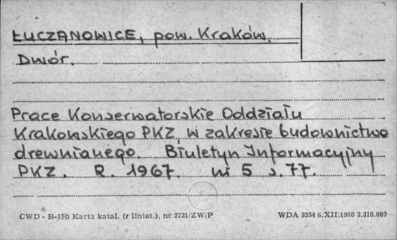 ŁUCZANOWICE, pow. Kraków.
Dwór.
Prace Konserwatorskie Oddziału
Krakowskiego PKZ w zakresie budownictwa
drewnianego. Biuletyn Informacyjny
PKZ. R. 1967. nr 5 s. 77.
CWD - B-15b Karta katal. (z liniat.), nr 2731/ZW/P WDA 3354 6.XII.1960 3.210.000